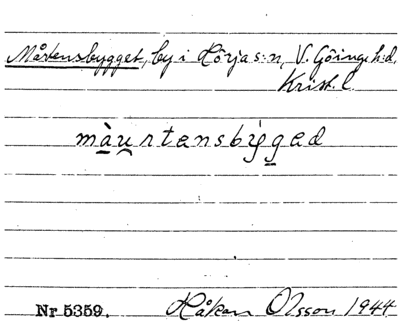 Mårtensbygget, by i Hörja s:n, V. Göinge h:d,
Krist. l.
màu̯rtensbýged
Nr 5359. Håkan Olsson 1944